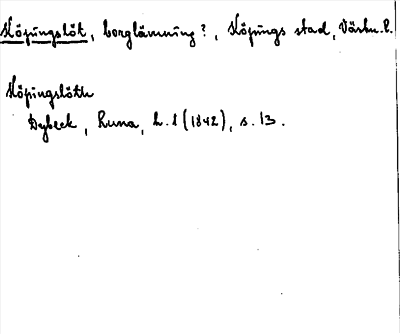 Köpingslöt, borglämning?, Köpings stad, Västm. l.
Köpingslöth
Dybeck, Runa, h. 1 (1842), s. 13.